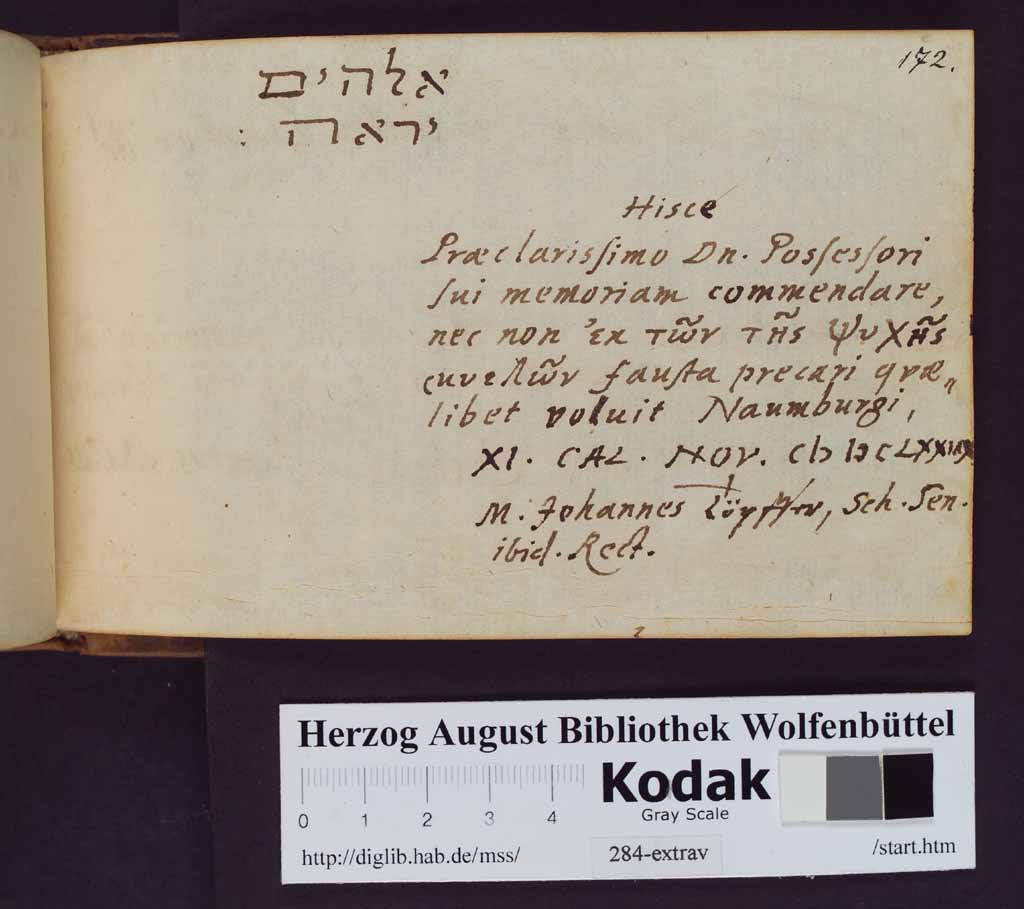 172.
אלהים
יראה :
Hisce
Præclarissimo Dn. Possessori
sui memoriam commendare,
nec non ἐκ τῶν τῆς ψυχῆς
fausta precari quæ„
libet voluit Naumburgi,
XI. CAL. NOV.
M. Johannes Töpffer, Sch. Sen.
ibid. Rect.
Herzog August Bibliothek Wolfenbüttel
Kodak
Gray Scale
0 1 2 3 4
http://diglib.hab.de/mss/
284-extrav
/start.htm